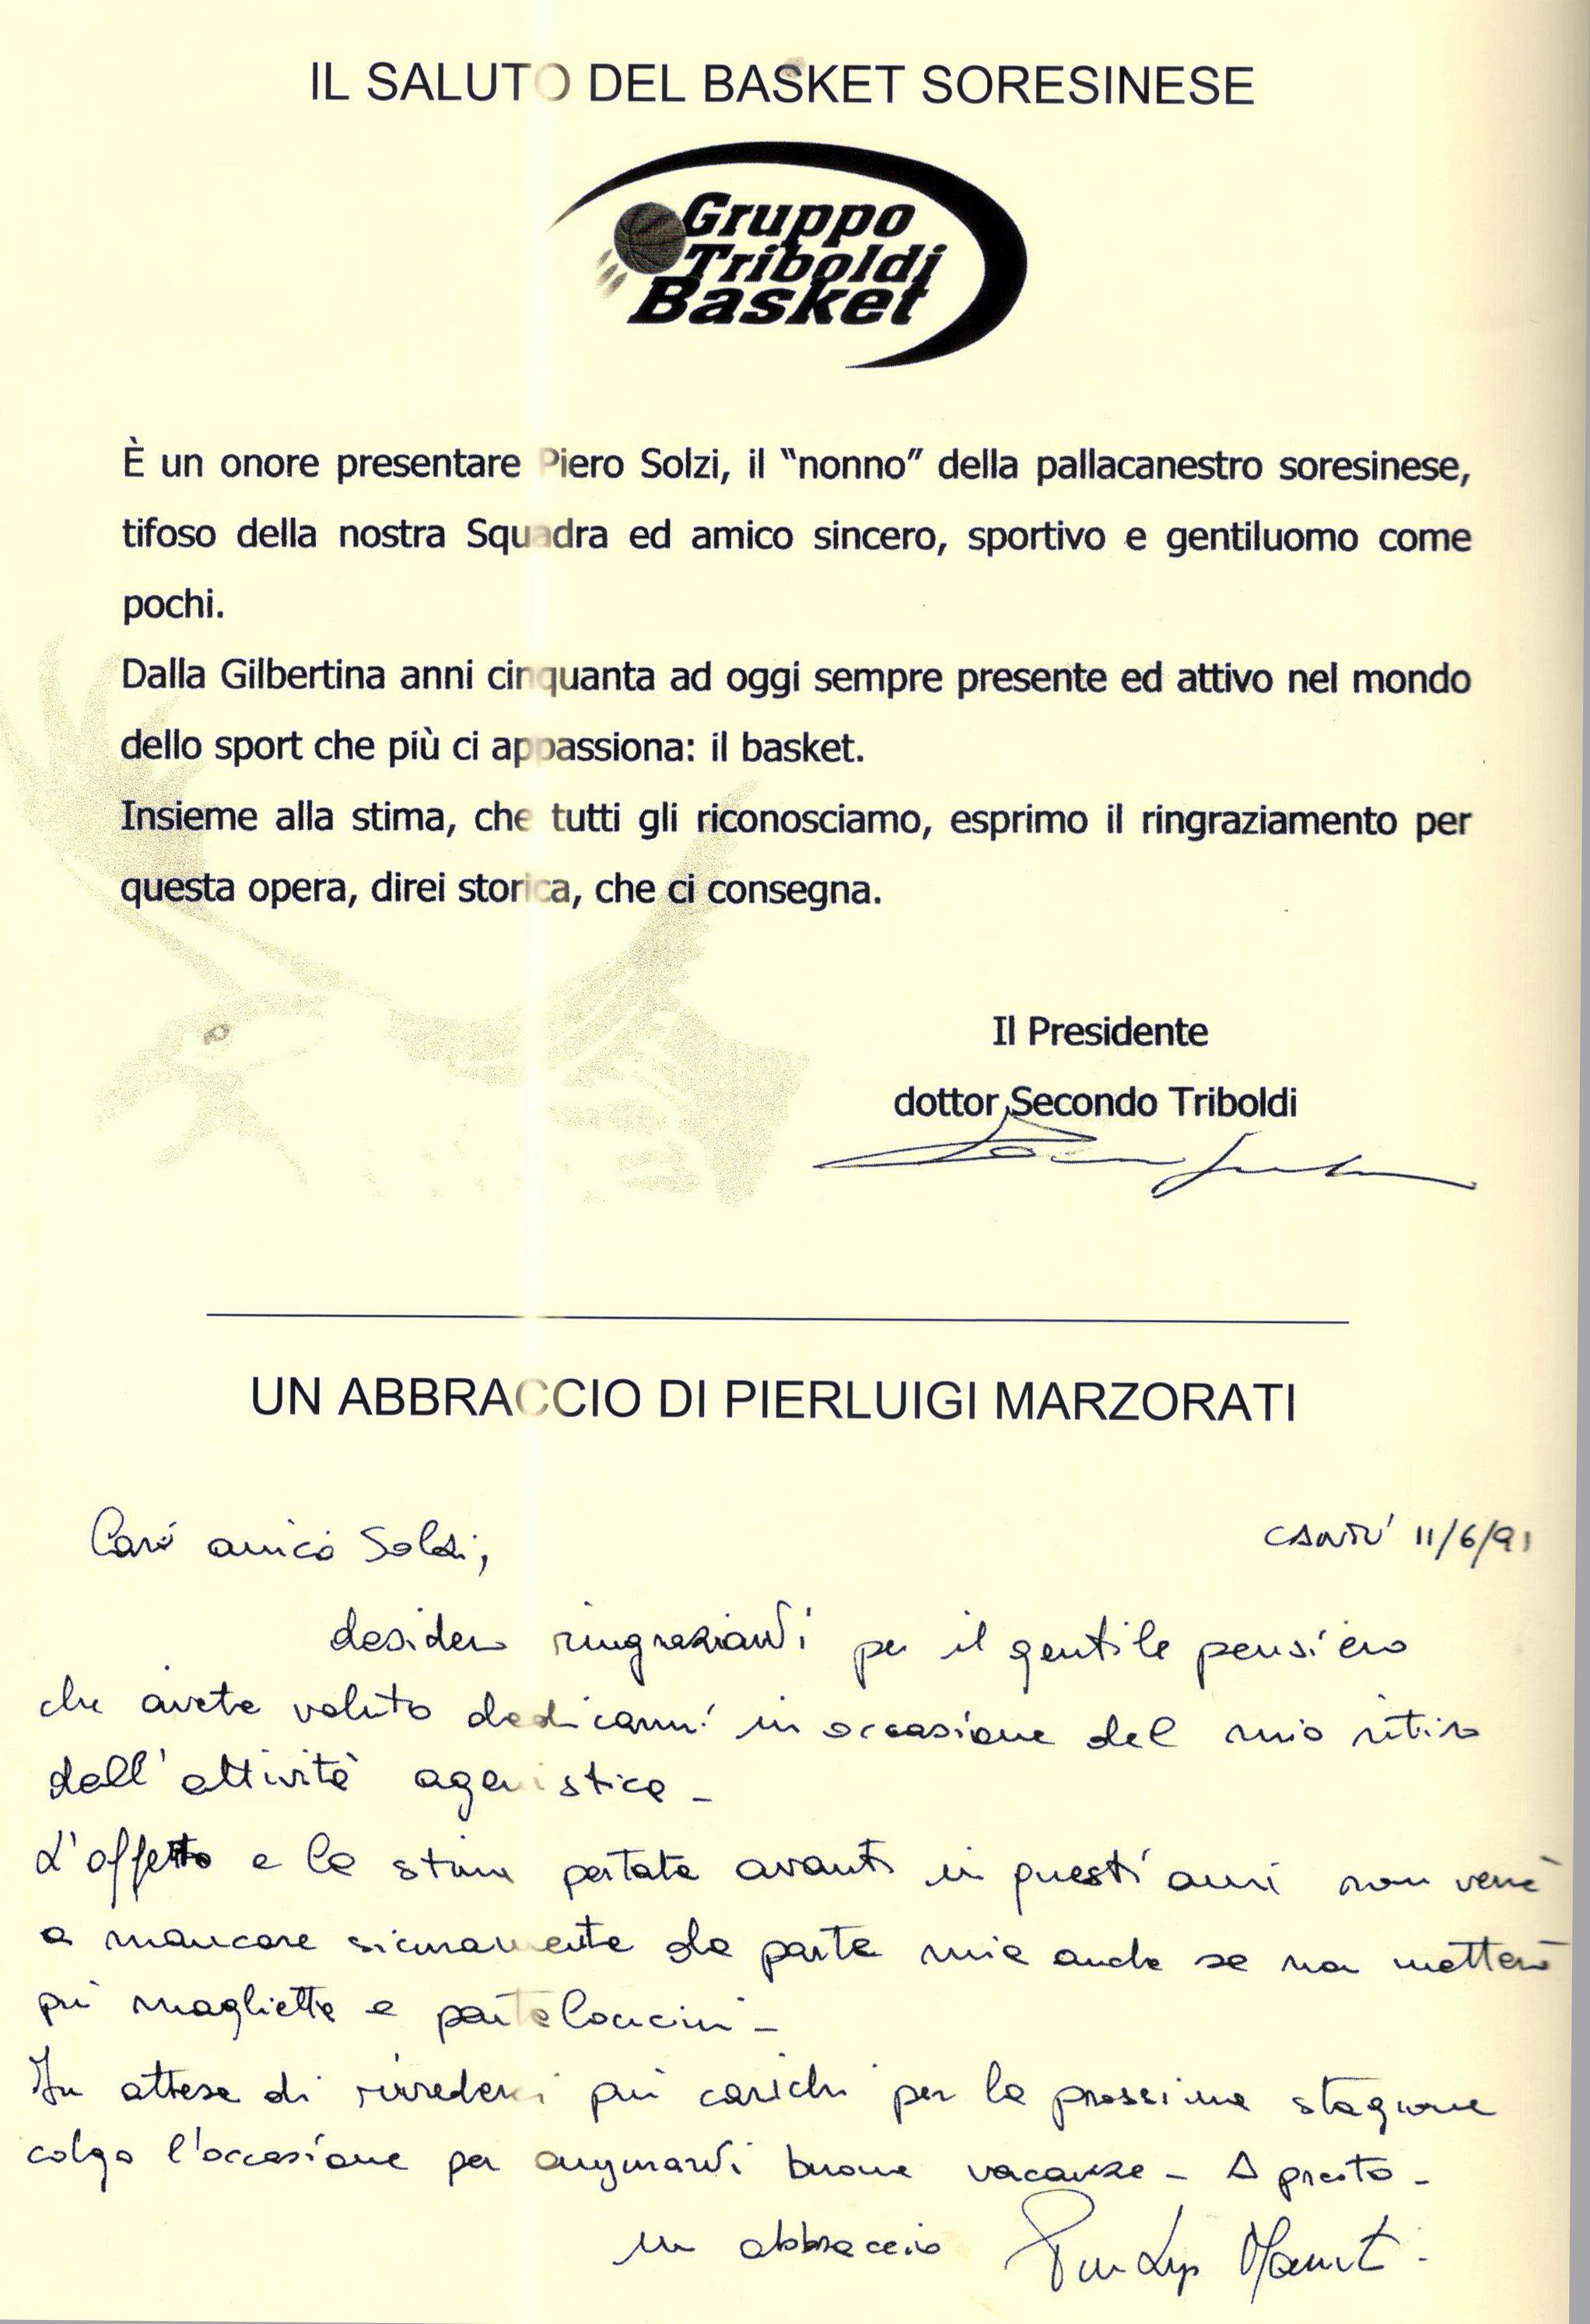 IL SALUTO DEL BASKET SORESINESE
Gruppo
Triboldi
Basket
È un onore presentare Piero Solzi, il “nonno” della pallacanestro soresinese,
tifoso della nostra Squadra ed amico sincero, sportivo e gentiluomo come
pochi.
Dalla Gilbertina anni cinquanta ad oggi sempre presente ed attivo nel mondo
dello sport che più ci appassiona: il basket.
Insieme alla stima, che tutti gli riconosciamo, esprimo il ringraziamento per
questa opera, direi storica, che ci consegna.
Il Presidente
dottor Secondo Triboldi
UN ABBRACCIO DI PIERLUIGI MARZORATI
CANTU' 11/6/91
Caro amico Solzi,
desidero ringraziarvi per il gentile pensiero
che avete voluto dedicarmi in occasione del mio ritiro
dall'attività agonistica -
L'affetto e la stima portata avanti in questi anni non verrà
a mancare sicuramente da parte mia anche se non metterò
più magliette e pantaloncini -
In attesa di rivederci più carichi per la prossima stagione
colgo l'occasione per augurarvi buone vacanze - A presto -
un abbraccio Pierluigi Marzorati